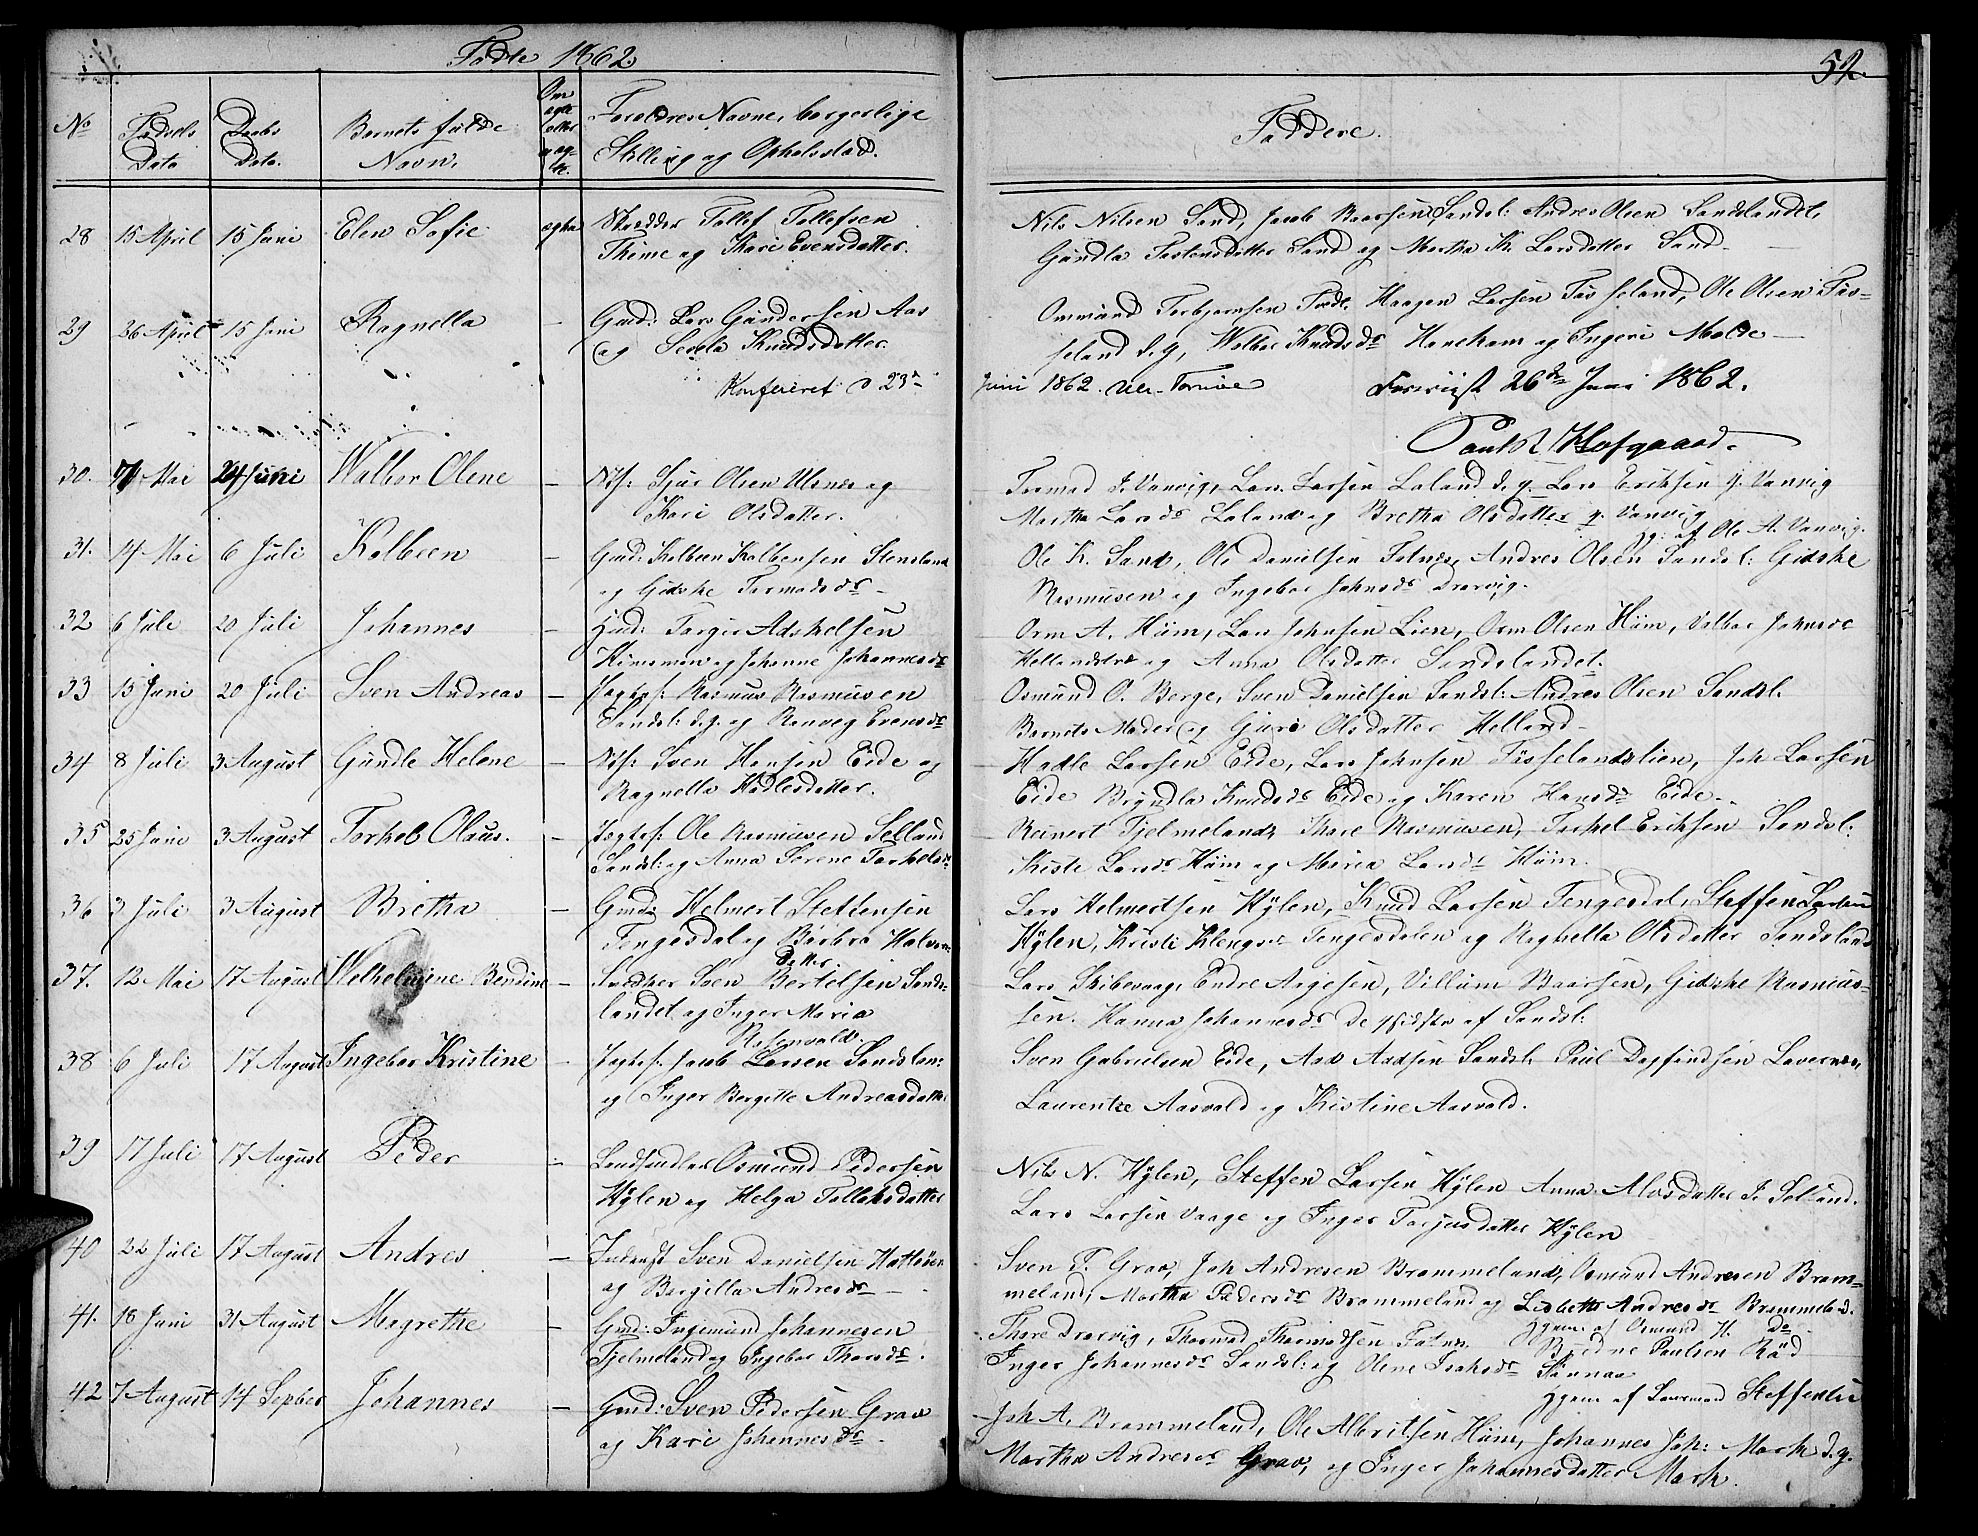 Fødte 1862.
52.
No
Fødsels Dato
Daabs Dato.
Barnets fulde Navn.
Om ægte eller uægte.
Foreldres Navne, borgerlige
Stilling og Opholsstad.
Faddere.
28 15 April 15 Juni Elen Sofie ægte Skrædder Tollef Tollefsen
Thime og Kari Evensdatter.
Nils Nilsen Sand, Jacob Baarsen Sandsl: Andres Olsen Sandslandet,
Gundla Tostensdatter Sand og Martha K. Larsdatter Sand
29 26 April 15 Juni Ragnella — Gmd: Lars Gundersen Aas
og Knudsdatter
Ommund Torbjørnsen Haagen Larsen Tysseland, Ole Olsen Tys-
seland d. y, Walbor Knudsdr Haneham og Ingeri Molde
Konfereret d 23de
Juni 1862.
Forevist 26de Juni 1862.
Hofgaard.
30. 7 Mai 24 Juni Walbor Olene — Nsf: Sjur Olsen Ulsnes og
Kari Olsdatter.
Tormod I. Vanvig, Lars Larsen Laland d. y. Lars Eriksen y. Vanvig
Martha Larsdr Laland og Bretha Olsdatter y. Vanvig
Hjd: af Ole A. Vanvig.
31. 14 Mai 6 Juli Kolbeen — Gmd: Kolbeen Kolbensen Stensland
og Gidske Tormodsdr
Ole K. Sand, Ole Danielsen Fatnes, Andres Olsen Sandsl: Gidske
Rasmusen og Ingebor Johnsdr Drarvig.
32 6 Juli 20 Juli Johannes — Hmd: Torger Adskelsen
Hinsman og Johanne Johannesdr
Orm A. Hiim, Lars Johnsen Lien, Orm Olsen Hiim, Valbor Johnsdr
og Anna Olsdatter Sandslandet.
33 15 Juni 20 Juli Sven Andreas — Jagtsf: Rasmus Rasmusen
Sandsl: d. y. og Ranveg Evensdr
Osmund O. Berge, Sven Danielsen Sandsl: Andres Olsen Sandsl.
Barnets Moder og Guro Olsdatter Helland
34 8 Juli 3 August Gundle Helene — Nsf: Sven Hansen Eide og
Ragnella Hadlesdatter.
Hadle Larsen Eide, Lars Johnsen Tysselandslien, Joh Larsen
Eide Bryndla Knudsdr Eide og Karen Hansdr Eide.
35 25 Juni 3 August Torkel Olaus. — Jagtsf: Ole Rasmusen Selland
Sandsl: og Anna Serene Torkelsdr
Reinert Fjelmeland, Thore Rasmusen, Torkel Eriksen Sandsl:
Kisti Larsdr Hiim og Maria Larsdr Hiim.
36 3 Juli 3 August Bretha — Gmd: Helmert Steffensen
Tengesdal og Barbra Halvors
datter
Lars Helmertsen Hylen, Knud Larsen Tengesdal, Steffen Larsen
Hylen, Kristi Klengsdr Tengesdalen og Ragnella Olsdatter Sandsland
37. 12 Mai 17 August Welhelmine Bendine — Snedker Sven Bertelsen Sands-
landet og Inger Maria
Rosenvald.
Lars Skibevaag, Endre Aagesen, Villum Baarsen, Gidske Rasmus-
sen. Hanna Johannesdr de 4 sidste af Sandsl:
38 6 Juli 17 August Ingebor Kristine — Jagtsf: Jacob Larsen Sandslan:
og Inger Bergitte Andreasdatter
Sven Gabrielsen Eide, Aad Aadsen Sandsl: Paul Dagfindsen Lavernes,
Laurentze Aasvald og Kistine Aasvald.
39 17 Juli 17 August Peder — Landhandler Osmund Pedersen
Hylen og Helga Tollaksdatter
Nils N. Hylen, Steffen Larsen Hylen Anna Alvsdatter I. Selland.
Lars Larsen Vaage og Inger Tarjusdatter Hylen
40 22 Juli 17 August Andres — Inderst Sven Danielsen Hatløen
og Bergilla Andresdr —
Sven T. Grav, Joh Andresen Brommeland, Osmund Andresen Brom-
meland, Martha Pedersdr Brommeland og Lisbetha Andresdr Brommeland.
Hjem. af Osmund H. do
41. 18 Juni 31 August Magrethe — Gmd: Ingemund Johannesen
Fjelmeland og Ingebor Thorsdr.
Thore Drarvig, Thormod Thormodsen Fatnes Bredne Paulsen Rød
Inger Johannesdr Sandsl: og Olene Isaksdr Sannaa
Hjem af Steffensen
42 7 August 14 Septber Johannes — Gmd: Sven Pedersen Grav
og Kari Johannesdr.
Joh A. Brommeland, Ole Albritsen Hiim, Johannes Joh: Mark d. y.
Martha Andresdr Grav, og Inger Johannesdatter Mark.